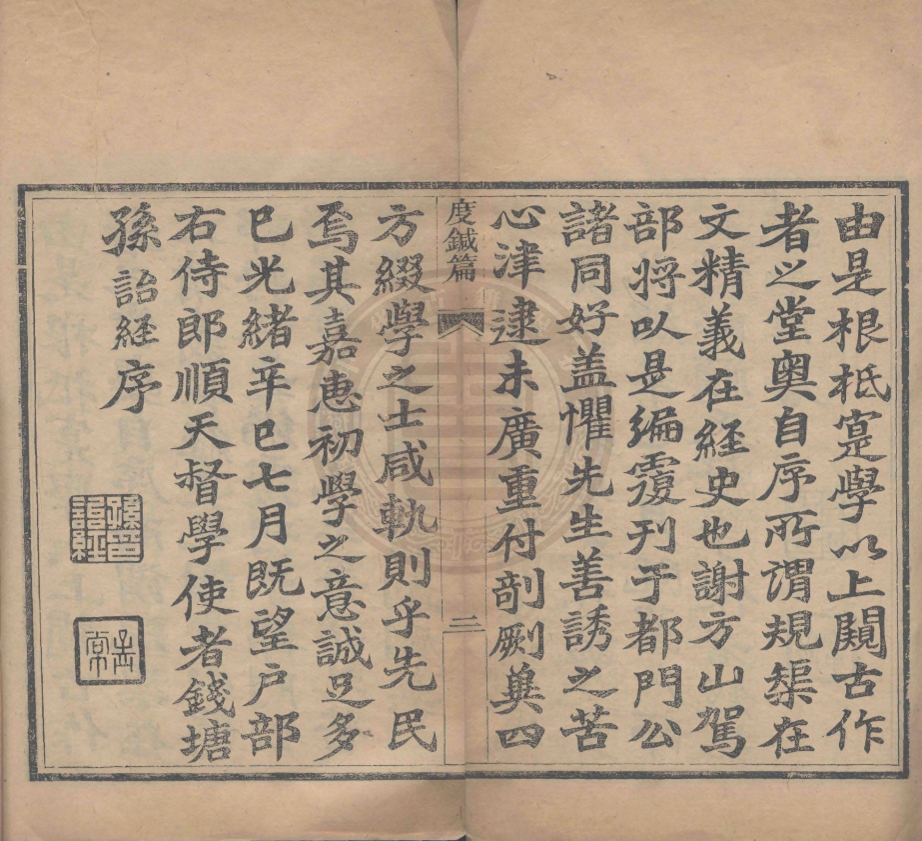 由是根柢寔學以上闚古作
者之堂奧自序所謂規榘在
文精義在經史也謝方山駕
部將以是編覆刊于都門公
諸同好盖懼先生善誘之苦
心津逮未廣重付剞劂冀四
度鍼篇
三
方綴學之士咸軌則乎先民
焉其嘉惠初學之意誠足多
已光緒辛巳七月既望户部
右侍郎順天督學使者錢塘
孫詒經序
孫詒經印